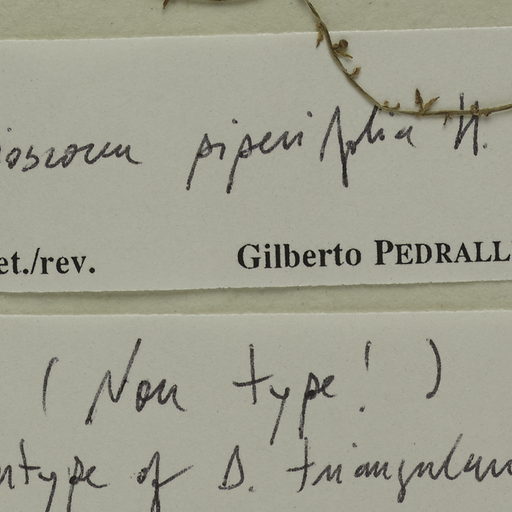 ioscorea piperifolia H.
et./rev. Gilberto PEDRALL
( Non type! )
ntype of D. triangularis